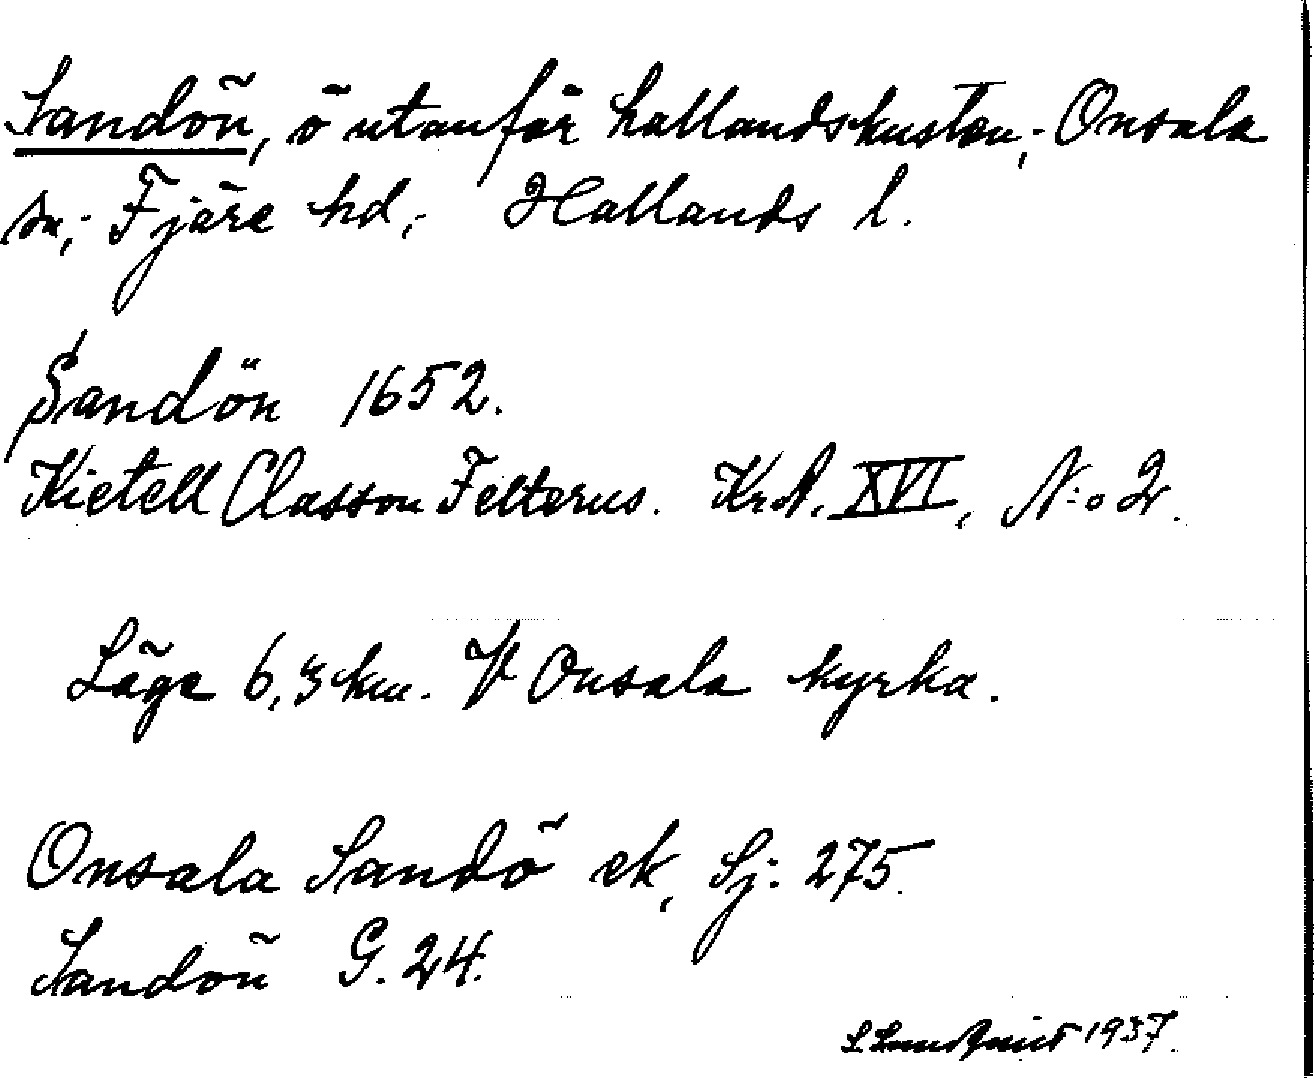 Sandön, ö utanför hallandskusten; Onsala
sn; Fjäre hd; Hallands l.
Sandön 1652.
Kietell Classon Felterus. Kr.A. XVI, N:o 2.
Läge 6,3 km. V Onsala kyrka.
Onsala Sandö ek, Sj: 275.
Sandön G. 24.
S. Lundqvist 1937.